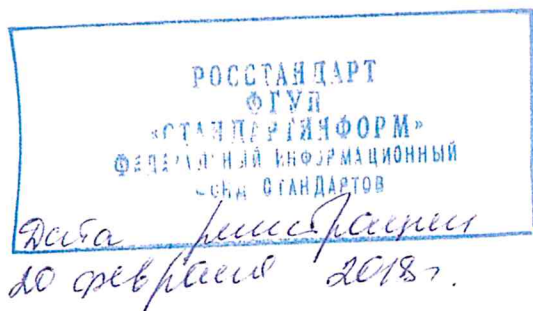 РОССТАНДАРТ
ФГУП
«СТАНДАРТИНФОРМ»
ФЕДЕРАЛЬНЫЙ ИНФОРМАЦИОННЫЙ
ФОНД СТАНДАРТОВ
Дата регистрации
20 февраля 2018г.